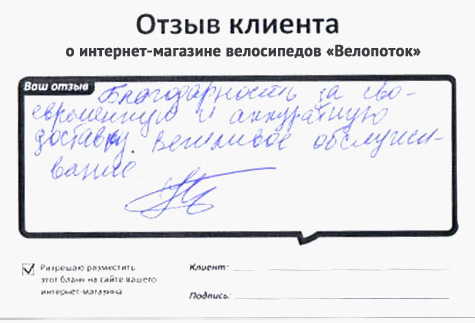 Отзыв клиента
о интернет-магазине велосипедов «Велопоток»
Ваш отзыв
Благодарность за сво-
евременную и аккуратную
доставку. Вежливое обслужи-
вание.
Разрешаю разместить
этот бланк на сайте вашего
интернет-магазина
Клиент:
Подпись: